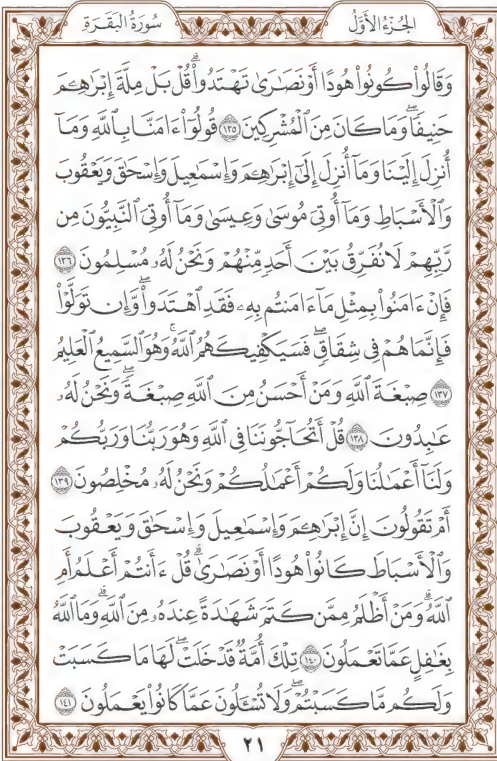 الجُزْءُ الأَوَّلُ سُورَةُ البَقَرَةِ
وَقَالُوا۟ كُونُوا۟ هُودًا أَوْ نَصَٰرَىٰ تَهْتَدُوا۟ۗ قُلْ بَلْ مِلَّةَ إِبْرَٰهِـۧمَ
حَنِيفًاۖ وَمَا كَانَ مِنَ ٱلْمُشْرِكِينَ ١٣٥ قُولُوٓا۟ ءَامَنَّا بِٱللَّهِ وَمَآ
أُنزِلَ إِلَيْنَا وَمَآ أُنزِلَ إِلَىٰٓ إِبْرَٰهِـۧمَ وَإِسْمَٰعِيلَ وَإِسْحَٰقَ وَيَعْقُوبَ
وَٱلْأَسْبَاطِ وَمَآ أُوتِىَ مُوسَىٰ وَعِيسَىٰ وَمَآ أُوتِىَ ٱلنَّبِيُّونَ مِن
رَّبِّهِمْ لَا نُفَرِّقُ بَيْنَ أَحَدٍ مِّنْهُمْ وَنَحْنُ لَهُۥ مُسْلِمُونَ ١٣٦
فَإِنْ ءَامَنُوا۟ بِمِثْلِ مَآ ءَامَنتُم بِهِۦ فَقَدِ ٱهْتَدَوا۟ۖ وَّإِن تَوَلَّوْا۟
فَإِنَّمَا هُمْ فِى شِقَاقٍۖ فَسَيَكْفِيكَهُمُ ٱللَّهُۚ وَهُوَ ٱلسَّمِيعُ ٱلْعَلِيمُ
١٣٧ صِبْغَةَ ٱللَّهِ وَمَنْ أَحْسَنُ مِنَ ٱللَّهِ صِبْغَةًۖ وَنَحْنُ لَهُۥ
عَٰبِدُونَ ١٣٨ قُلْ أَتُحَآجُّونَنَا فِى ٱللَّهِ وَهُوَ رَبُّنَا وَرَبُّكُمْ
وَلَنَآ أَعْمَٰلُنَا وَلَكُمْ أَعْمَٰلُكُمْ وَنَحْنُ لَهُۥ مُخْلِصُونَ ١٣٩
أَمْ تَقُولُونَ إِنَّ إِبْرَٰهِـۧمَ وَإِسْمَٰعِيلَ وَإِسْحَٰقَ وَيَعْقُوبَ
وَٱلْأَسْبَاطَ كَانُوا۟ هُودًا أَوْ نَصَٰرَىٰۗ قُلْ ءَأَنتُمْ أَعْلَمُ أَمِ
ٱللَّهُۗ وَمَنْ أَظْلَمُ مِمَّن كَتَمَ شَهَٰدَةً عِندَهُۥ مِنَ ٱللَّهِۗ وَمَا ٱللَّهُ
بِغَٰفِلٍ عَمَّا تَعْمَلُونَ ١٤٠ تِلْكَ أُمَّةٌ قَدْ خَلَتْۖ لَهَا مَا كَسَبَتْ
وَلَكُم مَّا كَسَبْتُمْۖ وَلَا تُسْـَٔلُونَ عَمَّا كَانُوا۟ يَعْمَلُونَ ١٤١
٢١